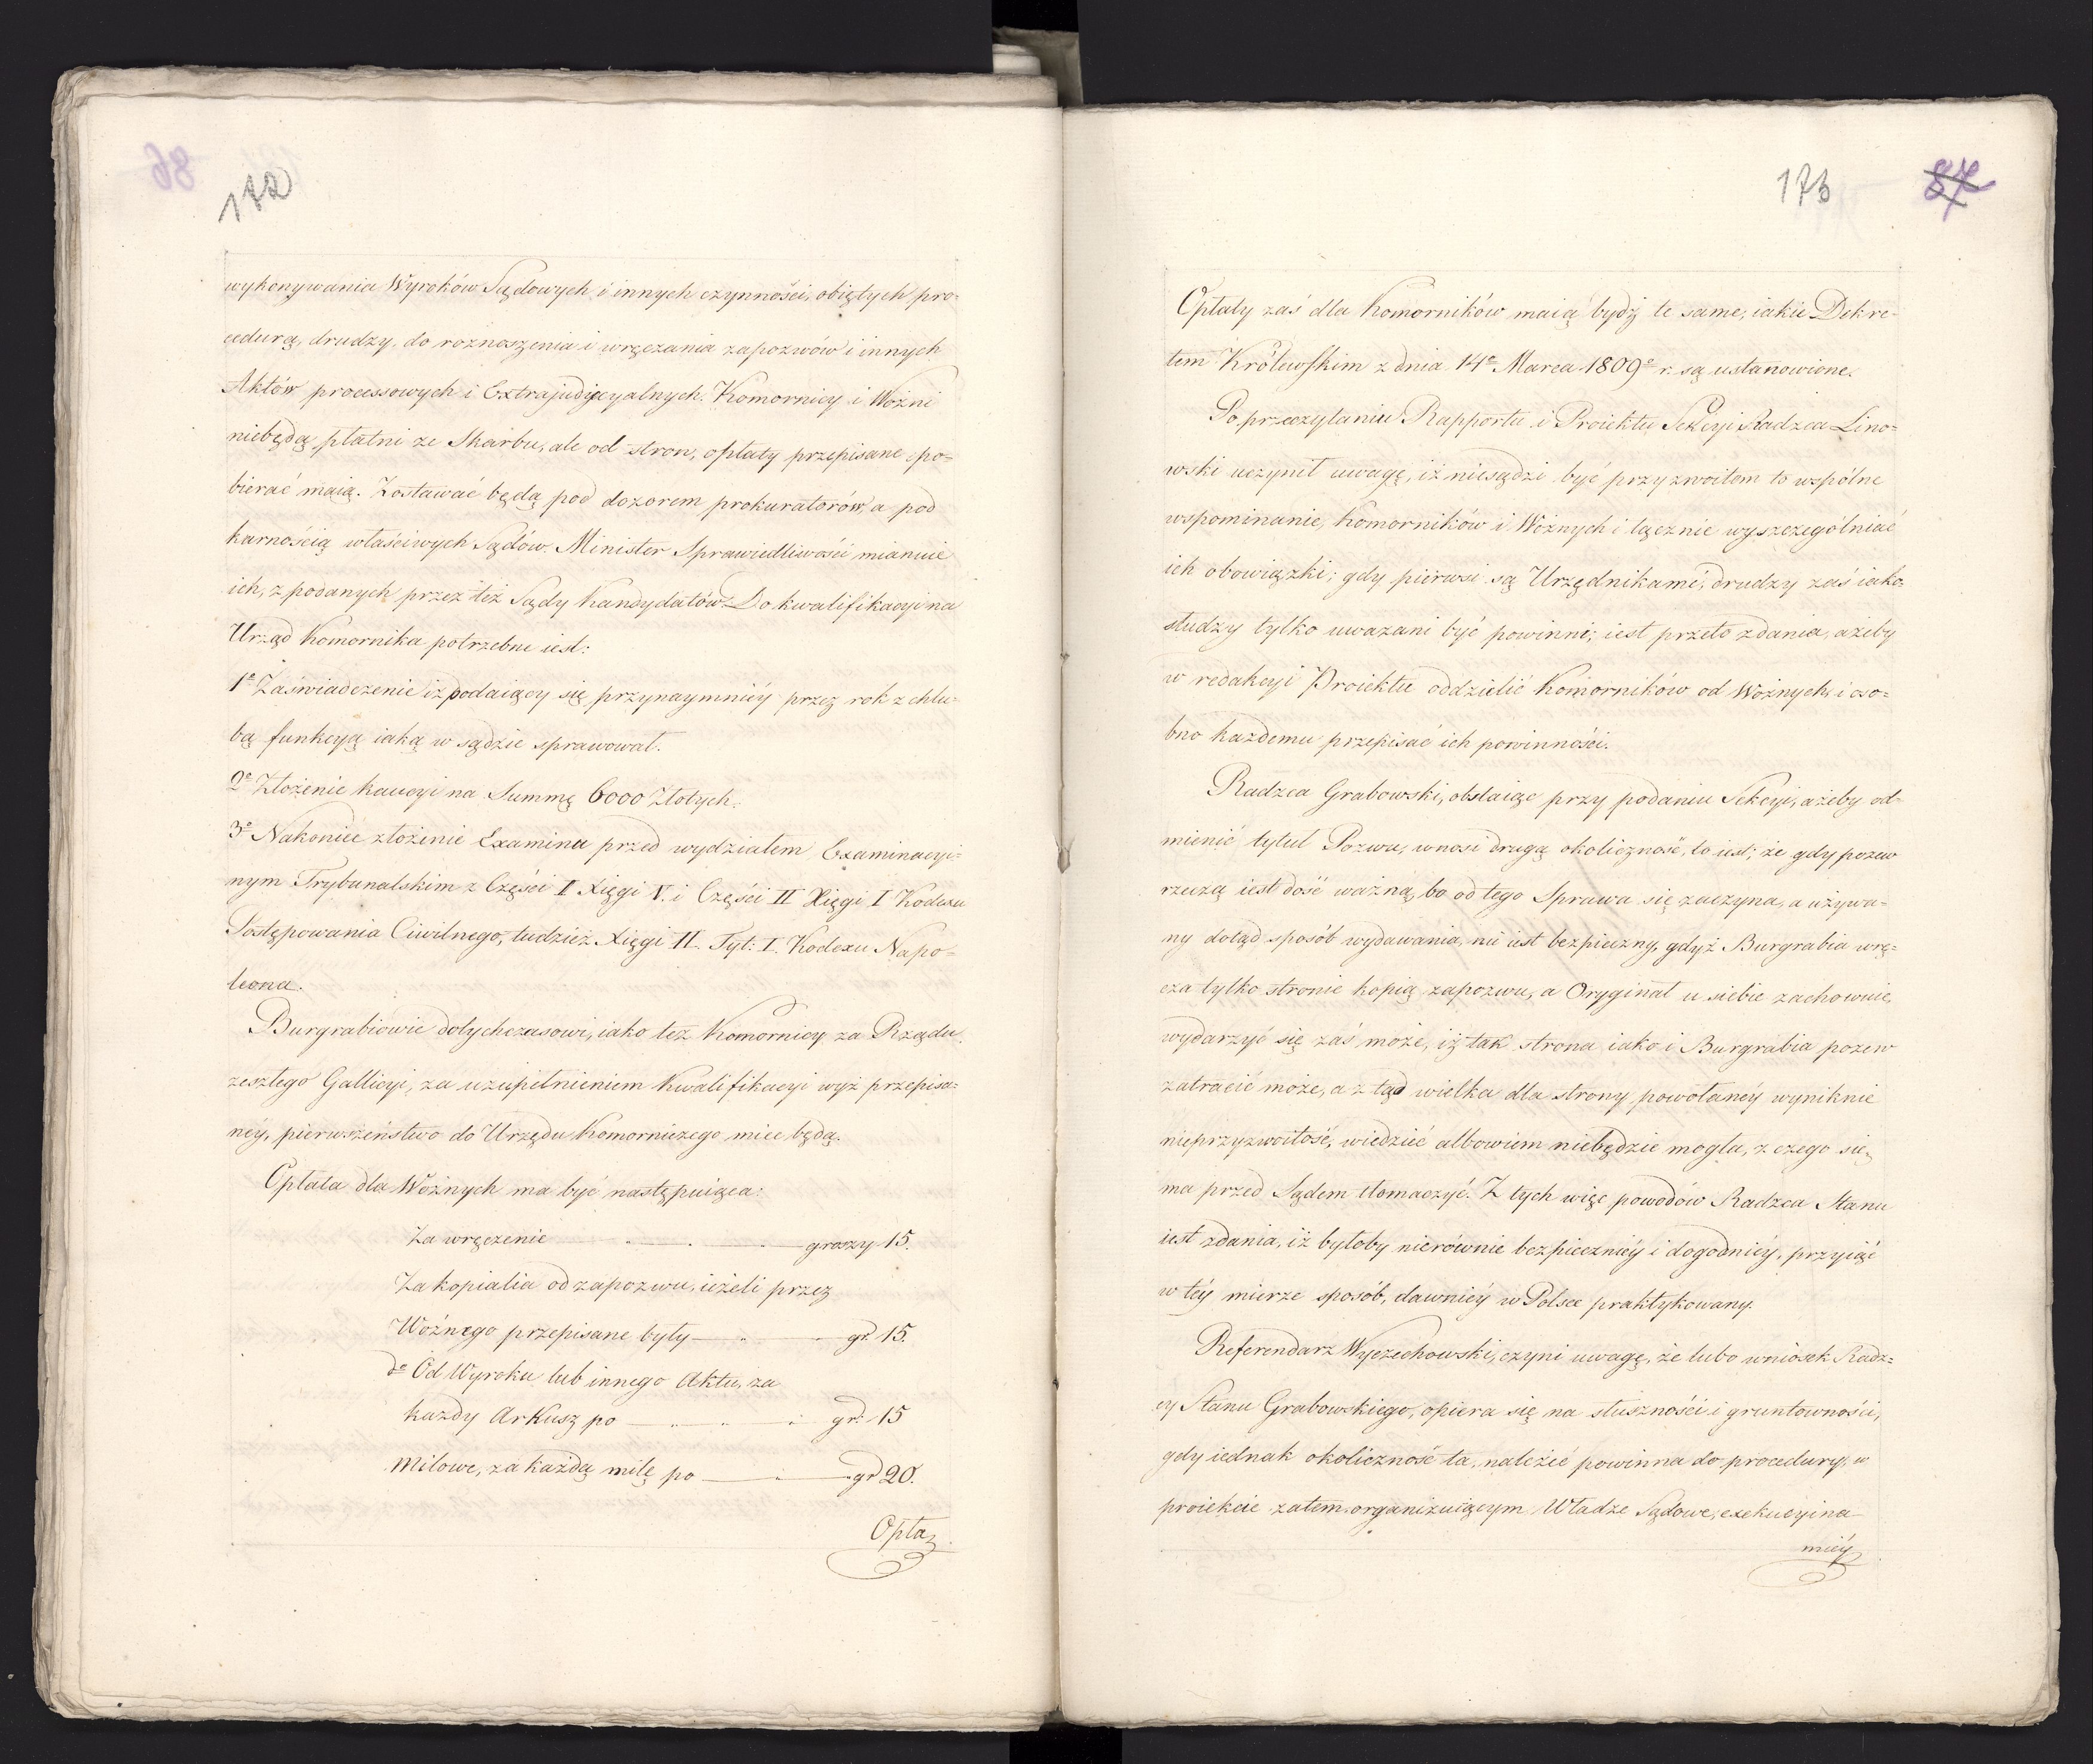 172
wykonywania Wyroków Sądowych i innych czynności, obiętych pro=
cedurą, drudzy, do roznoszenia i wręczania zapozwów i innych
Aktów processowych i Extrajudycyalnych. Komornicy i Woźni
niebędą płatni ze Skarbu, ale od stron, opłaty przepisane po=
bierać maią. Zostawać będą pod dozorem prokuratorów, a pod
karnością właściwych Sądów. Minister Sprawiedliwości mianuie
ich, z podanych przez też Sądy Kandydatów. Do kwalifikacyi na
Urząd Komornika potrzebne iest:
1º Zaświadczenie iż podaiący się przynaymniéy przez rok z chlu=
bą funkcyą iaką w sądzie sprawował.
2º Złożenie kaucyi na Summę 6000 Złotych.
3º Nakoniec złożenie Examinu przed wydziałem Examinacyi=
nym Trybunalskim z Części I Xięgi V. i Części II Xięgi I Kodexu
Postępowania Ciwilnego, tudzież Xięgi II. Tyt: I. Kodexu Napo=
leona.
Burgrabiowie dotychczasowi, iako też Komornicy za Rządu
zeszłego Gallicyi, za uzupełnieniem kwalifikacyi wyż przepisa=
néy, pierwszeństwo do Urzędu Komorniczego miec będą.
Opłata dla Woźnych ma być następuiąca:
Za wręczenie — groszy 15.
Za kopialia od zapozwu, ieżeli przez
Woźnego przepisane były — gr. 15.
do Od Wyroku lub innego Aktu, za
każdy Arkusz po — gr: 15
Milowe, za każdą milę po — gr 20.
Opła=
173
87
Opłaty zaś dla Komorników maią bydź te same, iakie Dekre=
tem Królewskim z dnia 14º Marca 1809º r. są ustanowione.
Po przeczytaniu Rapportu i Proiektu Sekcyi Radzca Lino=
wski uczynił uwagę, iż niesądzi być przyzwoitem to wspólne
wspominanie, Komorników i Woźnych i łącznie wyszczególniać
ich obowiązki; gdy piérwsi są Urzędnikami, drudzy zaś iako
słudzy tylko uwazani być powinni; iest przeto zdania, ażeby
w redakcyi Proiektu oddzielić Komorników od Woźnych, i oso=
bno każdemu przepisać ich powinności.
Radzca Grabowski, obstaiąc przy podaniu Sekcyi, ażeby od=
mienić tytuł Pozwu, wnosi drugą okoliczność, to iest; że gdy pozew
rzeczą iest dość ważną, bo od tego Sprawa się zaczyna, a używa=
ny dotąd sposób wydawania, nie iest bezpieczny, gdyż Burgrabia wrę=
cza tylko stronie kopią zapozwu, a Oryginał u siebie zachowuie,
wydarzyć się zaś może, iż tak strona iako i Burgrabia pozew
zatracić może, a z tąd wielka dla strony powołanéy wyniknie
nieprzyzwoitość, wiedzieć albowiem niebędzie mogła, z czego się
ma przed Sądem tłomaczyć. Z tych więc powodów Radzca Stanu
iest zdania, iż byłoby nierównie bezpieczniéy i dogodniéy, przyiąć
w téy mierze sposób, dawniéy w Polsce praktykowany.
Referendarz Wyczechowski, czyni uwagę, że lubo wniosek Radz=
cy Stanu Grabowskiego, opiera się na słuszności i gruntowności,
gdy iednak okoliczność ta, należéć powinna do procedury, w
proiekcie zatem organizuiącym Władze Sądowe, exekucyina
miéy